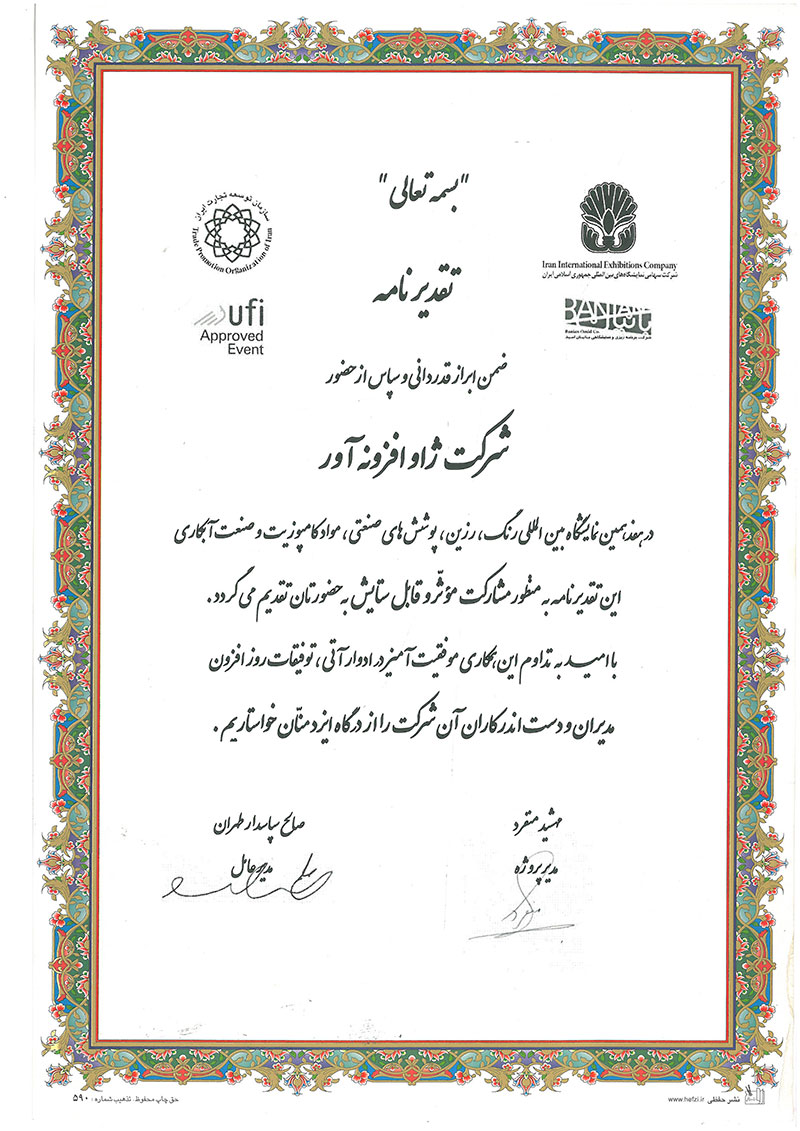 "بسمه تعالی"
سازمان توسعه تجارت ایران
Trade Promotion Organization of Iran
Iran International Exhibitions Company
شرکت سهامی نمایشگاه‌های بین المللی جمهوری اسلامی ایران
تقدیر نامه
ufi
Approved
Event
BANIAN
بانیان
Banian Omid Co.
شرکت برنامه ریزی و نمایشگاهی بانیان امید
ضمن ابراز قدردانی و سپاس از حضور
شرکت ژاو افزونه آور
در هفدهمین نمایشگاه بین المللی رنگ، رزین، پوشش های صنعتی، مواد کامپوزیت و صنعت آبکاری
این تقدیرنامه به منظور مشارکت مؤثّر و قابل ستایش به حضورتان تقدیم می گردد.
با امید به تداوم این همکاری موفقیت آمیز در ادوار آتی، توفیقات روز افزون
مدیران و دست اندرکاران آن شرکت را از درگاه ایزد منّان خواستاریم.
مهشید متفرد
صالح پاسدار طهران
مدیر پروژه
مدیرعامل
نشر حفظی www.hefzi.ir
حق چاپ محفوظ، تذهیب شماره: ۵۹۰